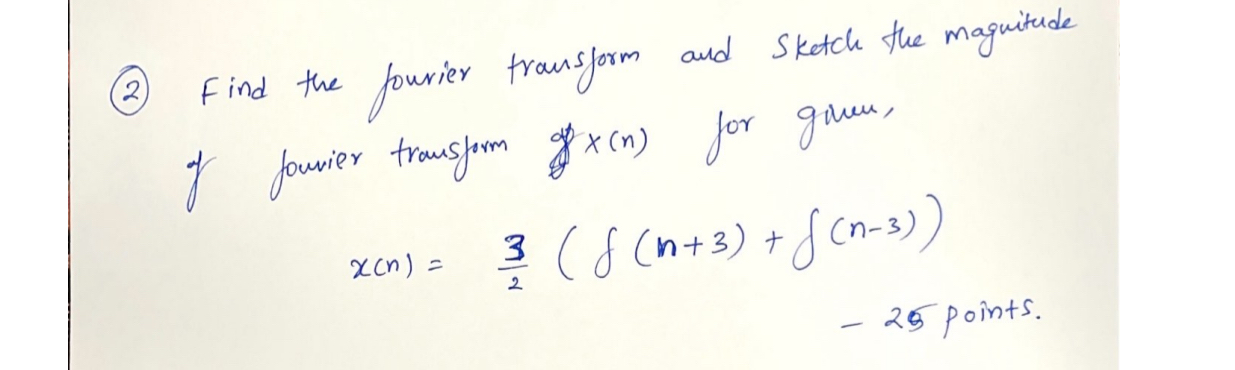 ② Find the fourier transform and Sketch the magnitude
of fourier transform of x(n) for given,
x(n) = 3/2 (δ(n+3) + δ(n-3))
- 25 points.